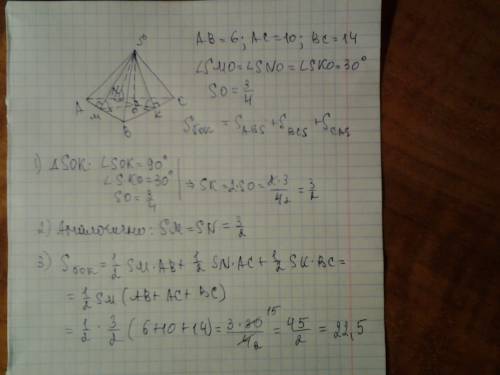 S
A
M
N
O
B
K
C
AB=6; AC=10; BC=14
∠SMO=∠SNO=∠SKO=30°
SO=3/4
Sбок = S_ABS + S_BCS + S_CAS
1) ΔSOK: ∠SOK=90°
∠SKO=30°
SO=3/4
⇒ SK=2·SO=2·3/4 2=3/2
2) Аналогично: SM=SN=3/2
3) Sбок=1/2 SM·AB+1/2 SN·AC+1/2 SK·BC=
=1/2 SM(AB+AC+BC)
=1/2·3/2(6+10+14)=3·30 15/4 2=45/2=22,5